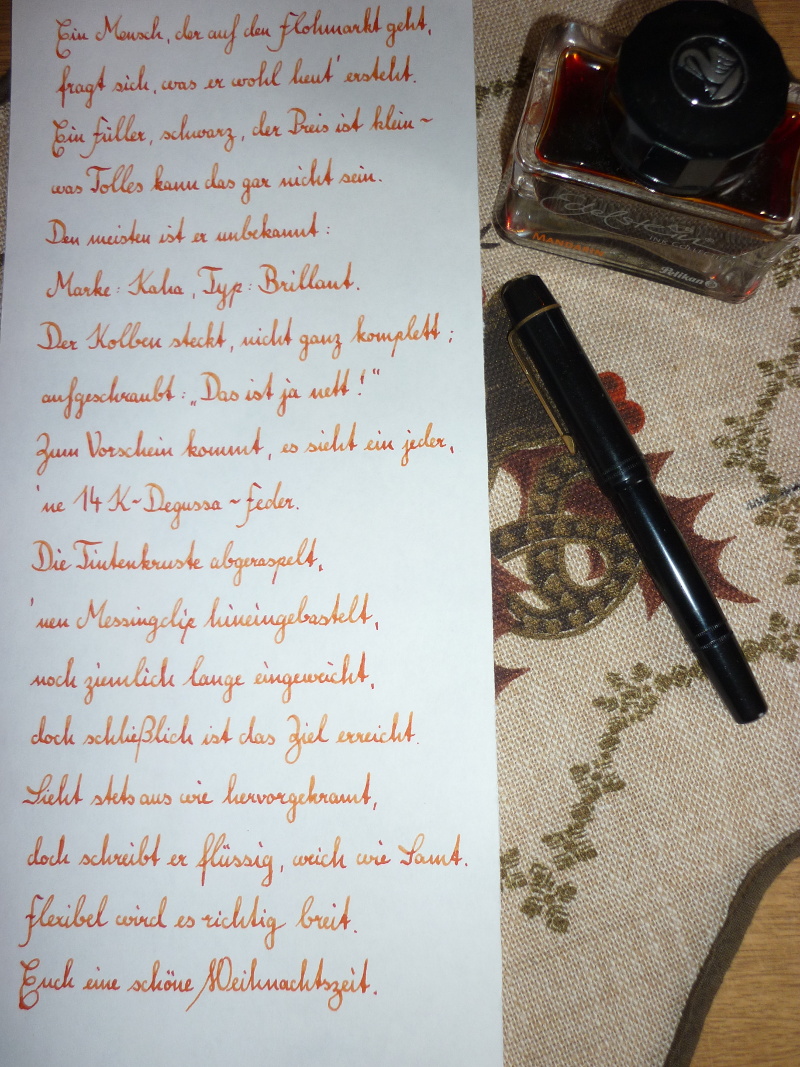 Ein Mensch, der auf den Flohmarkt geht,
fragt sich, was er wohl heut' ersteht.
Ein Füller, schwarz, der Preis ist klein ~
was Tolles kann das gar nicht sein.
Den meisten ist er unbekannt:
Marke: Kaha, Typ: Brillant.
Der Kolben steckt, nicht ganz komplett;
aufgeschraubt: „Das ist ja nett!"
Zum Vorschein kommt, es sieht ein jeder,
'ne 14 K~Degussa~Feder.
Die Tintenkruste abgeraspelt,
'nen Messingclip hineingebastelt,
noch ziemlich lange eingeweicht,
doch schließlich ist das Ziel erreicht.
Sieht stets aus wie hervorgekramt,
doch schreibt er flüssig, weich wie Samt.
Flexibel wird es richtig breit.
Euch eine schöne Weihnachtszeit.
Edelstein
INK COLLECTION
MANDARIN
Pelikan